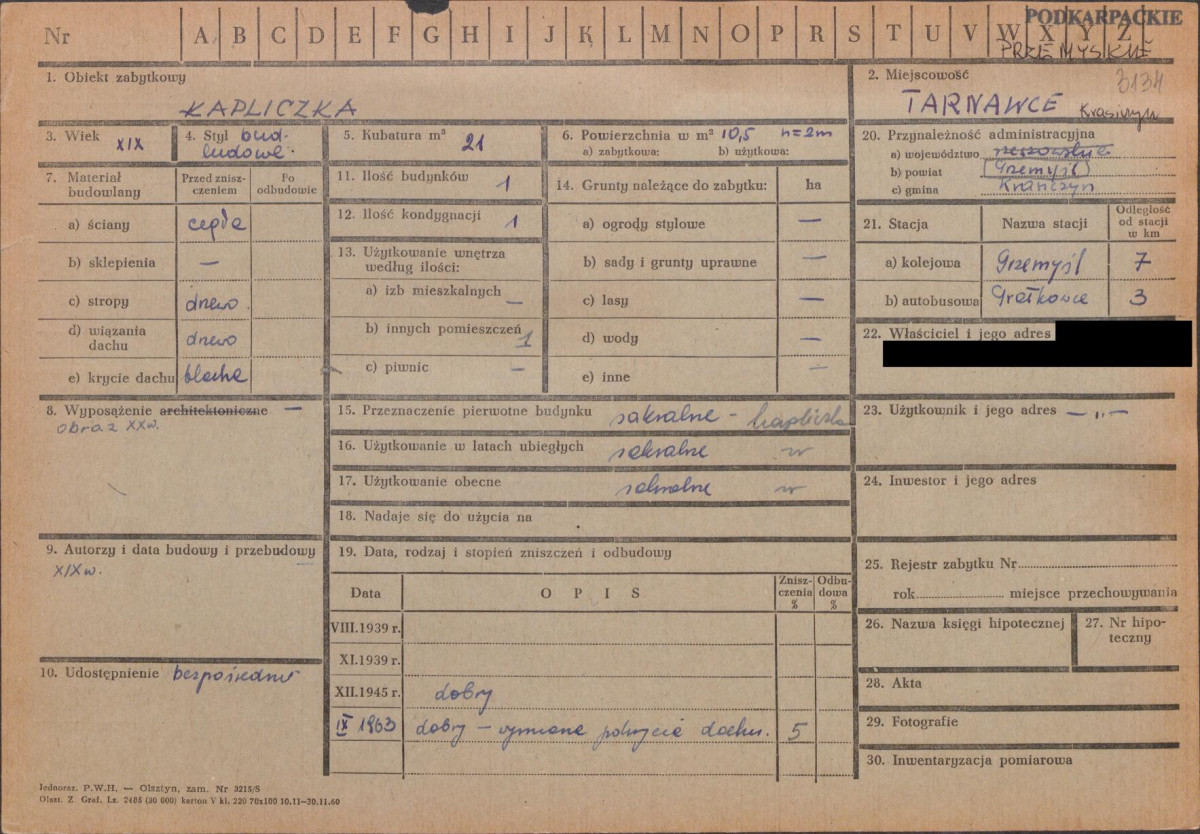 PODKARPACKIE
PRZEMYSKIE
Nr A B C D E F G H I J K L M N O P R S T U V W X Y Z
3134
1. Obiekt zabytkowy
KAPLICZKA
2. Miejscowość
TARNAWCE Krasiczyn
3. Wiek XIX
4. Styl bud-
ludowe
5. Kubatura m³ 21
6. Powierzchnia w m² 10,5 h=2m
a) zabytkowa: b) użytkowa:
7. Materiał budowlany
Przed znisz-
czeniem
Po
odbudowie
a) ściany cegła
b) sklepienia —
c) stropy drewo
d) wiązania
dachu drewo
e) krycie dachu blacha
8. Wyposażenie architektoniczne —
obraz XXw.
9. Autorzy i data budowy i przebudowy
XIXw.
10. Udostępnienie bezpośednie
11. Ilość budynków 1
12. Ilość kondygnacji 1
13. Użytkowanie wnętrza
według ilości:
a) izb mieszkalnych —
b) innych pomieszczeń 1
c) piwnic —
14. Grunty należące do zabytku: ha
a) ogrody stylowe —
b) sady i grunty uprawne —
c) lasy —
d) wody —
e) inne —
15. Przeznaczenie pierwotne budynku sakralne - kapliczka
16. Użytkowanie w latach ubiegłych sakralne
17. Użytkowanie obecne sakralne
18. Nadaje się do użycia na
19. Data, rodzaj i stopień zniszczeń i odbudowy
Data O P I S
Znisz-
czenia
%
Odbu-
dowa
%
VIII.1939 r.
XI.1939 r.
XII.1945 r. dobry
IX 1963 dobry — wymiana pokrycia dachu. 5
20. Przynależność administracyjna
a) województwo rzeszowskie
b) powiat Przemyśl
c) gmina Krasiczyn
21. Stacja Nazwa stacji
Odległość
od stacji
w km
a) kolejowa Przemyśl 7
b) autobusowa Prałkowce 3
22. Właściciel i jego adres
23. Użytkownik i jego adres — „ —
24. Inwestor i jego adres
25. Rejestr zabytku Nr
rok miejsce przechowywania
26. Nazwa księgi hipotecznej
27. Nr hipo-
teczny
28. Akta
29. Fotografie
30. Inwentaryzacja pomiarowa
Jednoraz. P.W.H. — Olsztyn, zam. Nr 3215/S
Olszt. Z. Graf. Lz. 2485 (30 000) karton V kl. 220 70x100 10.11—30.11.60